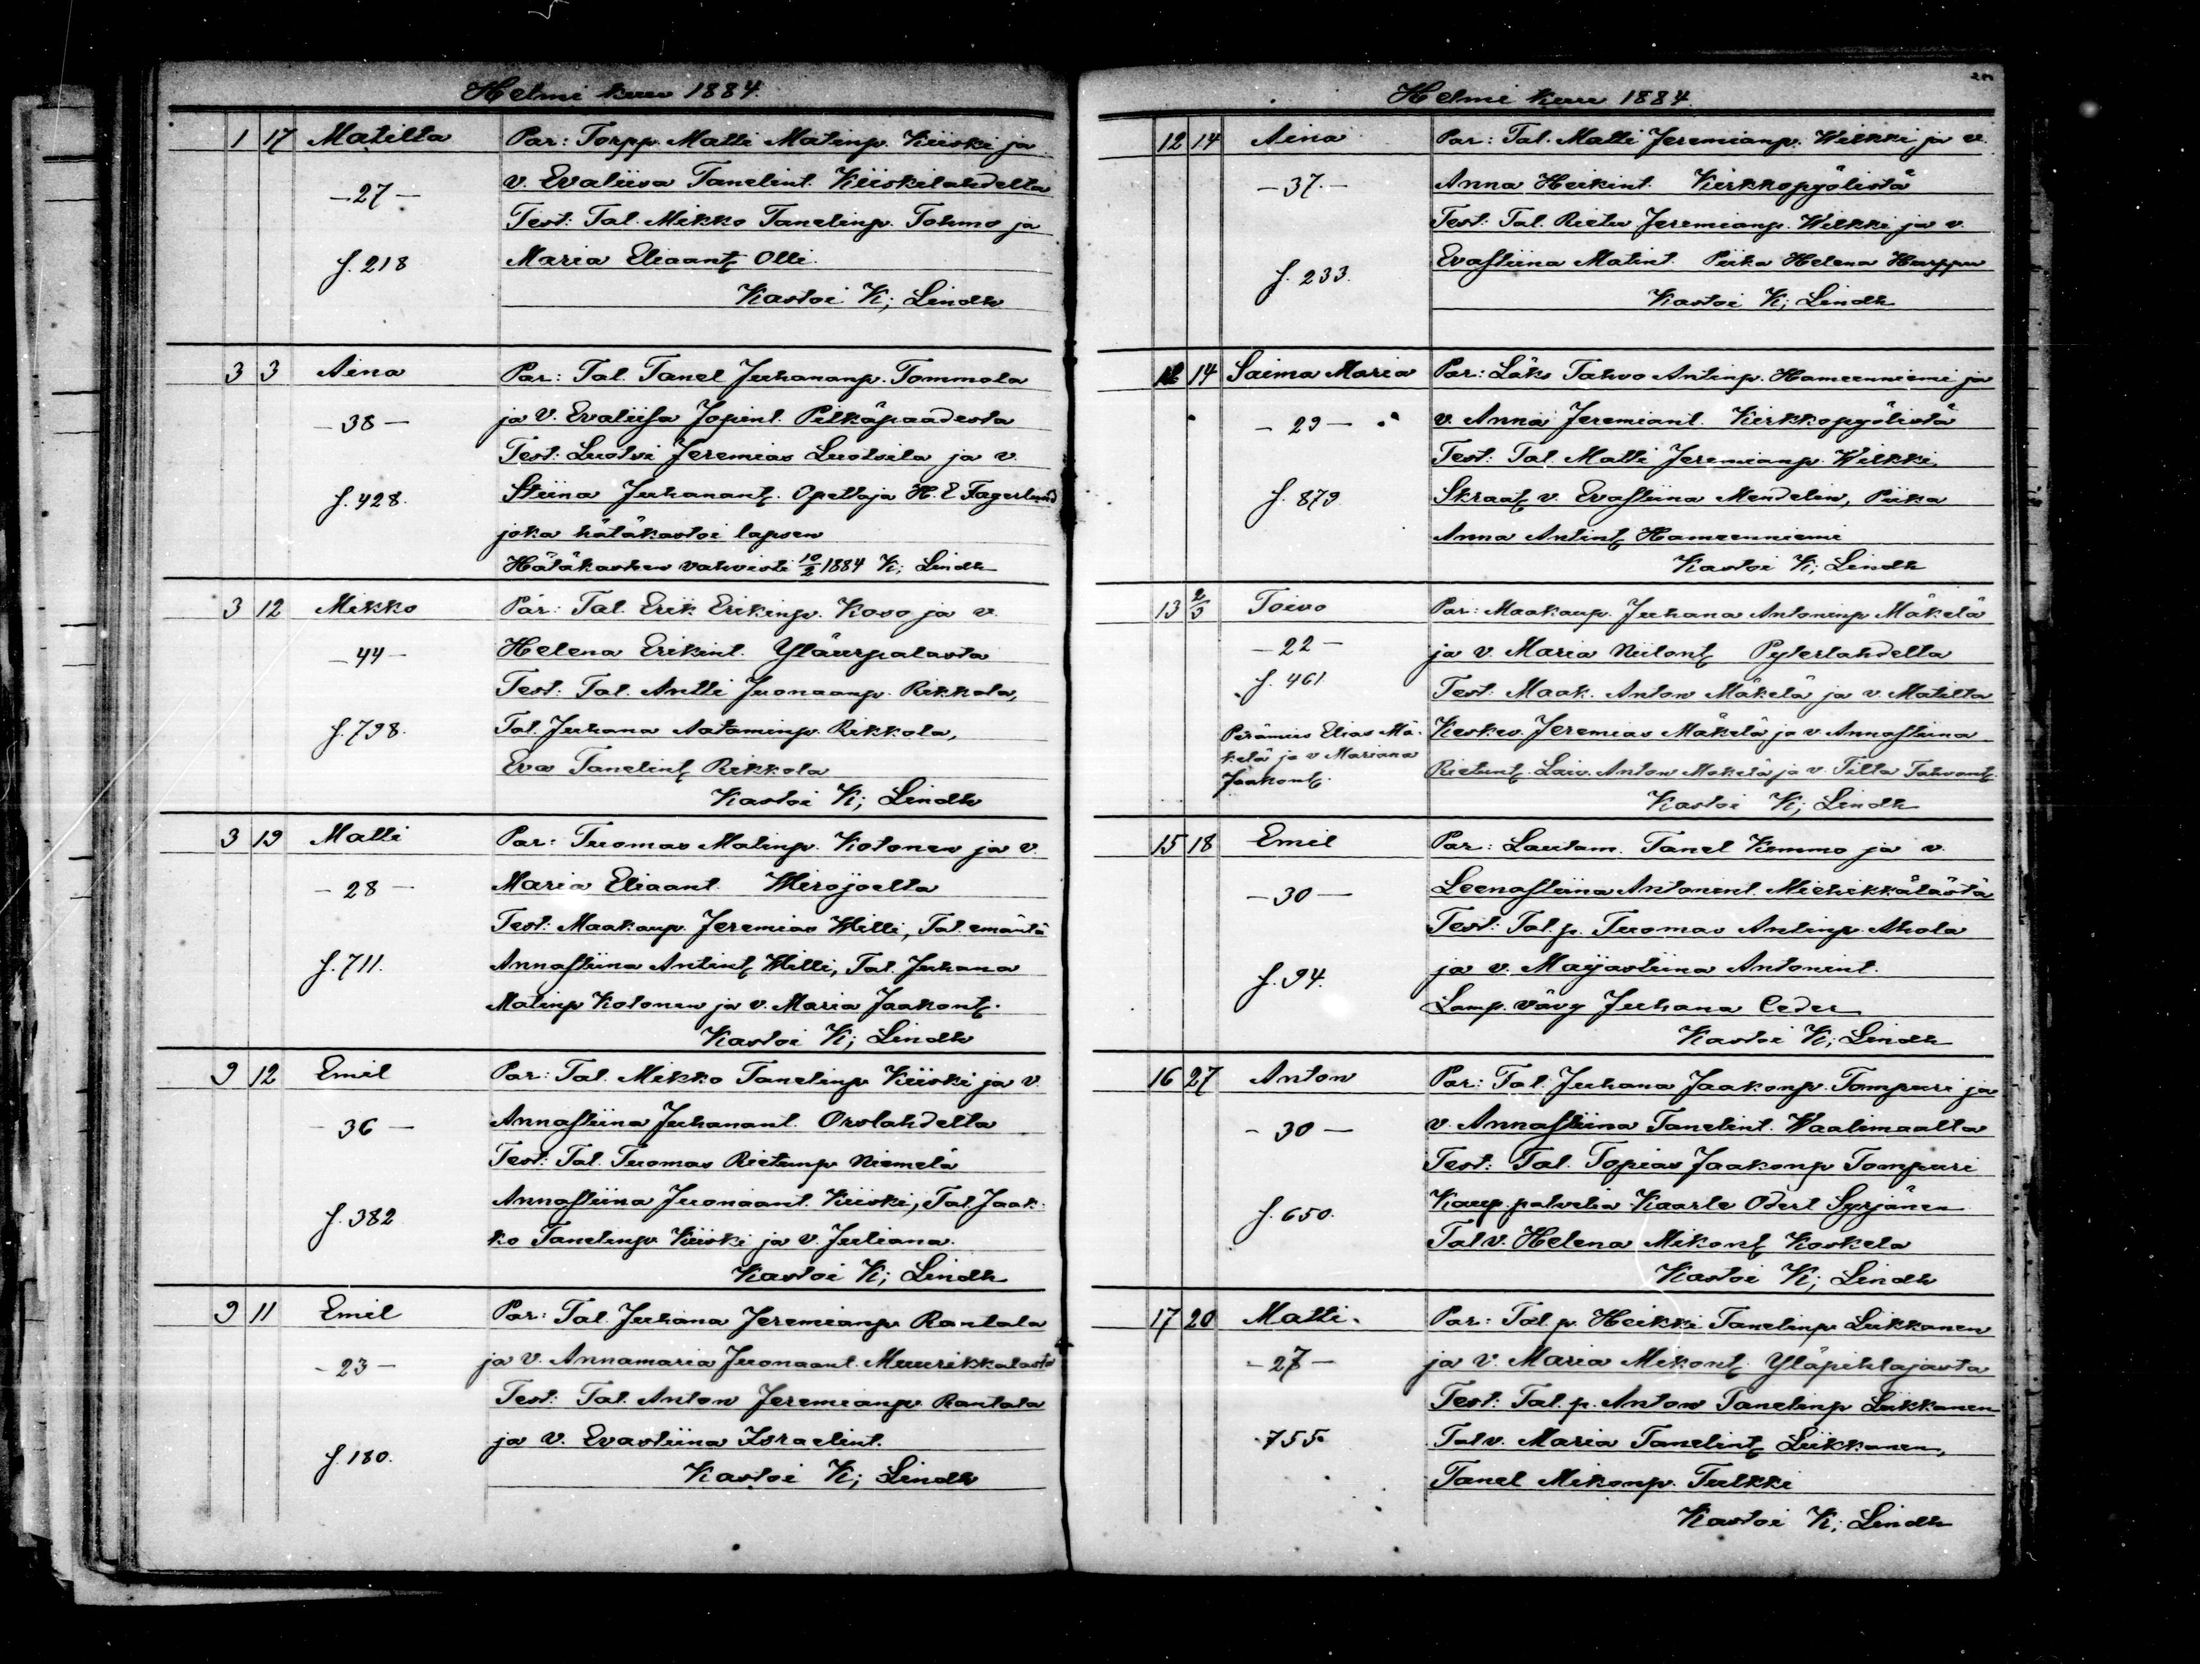 Helmi kuu 1884.
1 17 Matilta Par: Torpp. Matti Matinp. Kiiski ja
v. Evaliisa Tanelint. Kiiskilahdelta
-27-
Test: Tal. Mikko Tanelinp. Tohmo ja
f. 218 Maria Eliaant. Olli.
Kastoi K; Lindh
3 3 Aina Par: Tal. Tanel Juhananp. Tommola
-38- ja v. Evaliisa Jopint. Pitkäpaadesta
Test: Luotsi Jeremias Luotsila ja v.
f. 428. Stiina Juhanant. Opettaja H. E Fagerlund
joka hätäkastoi lapsen
Hätäkasteen vahvisti 10/2 1884 K; Lindh
3 12 Mikko Par: Tal. Erik Erikinp. Koso ja v.
-44- Helena Erikint. Yläurpalasta
Test: Tal. Antti Juonaanp. Rikkola,
f. 798. Tal. Juhana Aataminp. Rikkola,
Eva Tanelint. Rikkola
Kastoi K; Lindh
3 19 Matti Par: Tuomas Matinp. Kotonen ja v.
-28- Maria Eliaant. Wirojoelta
Test: Maakaup. Jeremias Willi, Tal. emäntä
f. 711. Annastiina Antint. Willi, Tal. Juhana
Matinp Kotonen ja v. Maria Jaakont.
Kastoi K; Lindh
9 12 Emil Par: Tal. Mikko Tanelinp Kiiski ja v.
-36- Annastiina Juhanant. Orslahdelta
Test: Tal. Tuomas Rietunp Niemelä
f. 382 Annastiina Juonaant. Kiiski, Tal. Jaak-
ko Tanelinp Kiiski ja v. Juliana.
Kastoi K; Lindh
9 11 Emil Par: Tal. Juhana Jeremianp Rantala
-23- ja v. Annamaria Juonaant. Muurikkalasta
Test: Tal. Anton Jeremianp. Rantala
f. 180. ja v. Evastiina Israelint.
Kastoi K; Lindh
Helmi kuu 1884.
12 14 Aina Par: Tal. Matti Jeremianp. Wilkki ja v.
-37.- Anna Heikint. Kirkkopyölistä
Test: Tal. Rietu Jeremianp. Wilkki ja v.
f. 233. Evastiina Matint. Piika Helena Harppu
Kastoi K; Lindh
12 14 Saima Maria Par: Läks Tahvo Antinp. Hameenniemi ja
-29- v. Anna Jeremiant. Kirkkopyölistä
Test: Tal. Matti Jeremianp. Wilkki,
f. 879 Skraat. v. Evastiina Mendelin, Piika
Anna Antint. Hameenniemi
Kastoi K; Lindh
13 2/3 Toivo Par: Maakaup. Juhana Antoninp Mäkelä
-22- ja v. Maria Niilont. Pyterlahdelta
f. 461 Test: Maak. Anton Mäkelä ja v. Matilta
Perämies Elias Mä- Keskes. Jeremias Mäkelä ja v Annastiina
kelä ja v Mariana Rietunt. Laiv. Anton Mäkelä ja v. Tilta Tahvont.
Jaakont. Kastoi K; Lindh
15 18 Emil Par: Lautam. Tanel Kemmo ja v.
-30- Leenastiina Antonint. Miehikkälästä
Test: Tal. p. Tuomas Antinp. Ahola
f. 94. ja v. Majastiina Antonint.
Lamp. vävy Juhana Ceder
Kastoi K; Lindh
16 27 Anton Par: Tal. Juhana Jaakonp. Tompuri ja
-30- v. Annastiina Tanelint. Waalimaalta
Test: Tal. Topias Jaakonp Tompuri
f. 650. Kaup. palvelia Kaarle Odert Syrjänen
Tal v. Helena Mikont. Koskela
Kastoi K; Lindh
17 20 Matti. Par: Tal. p. Heikki Tanelinp Liikkanen
-27- ja v. Maria Mikont. Yläpihlajasta
Test: Tal. p. Anton Tanelinp Liikkanen
755. Tal v. Maria Tanelint. Liikkanen,
Tanel Mikonp. Tulkki
Kastoi K; Lindh